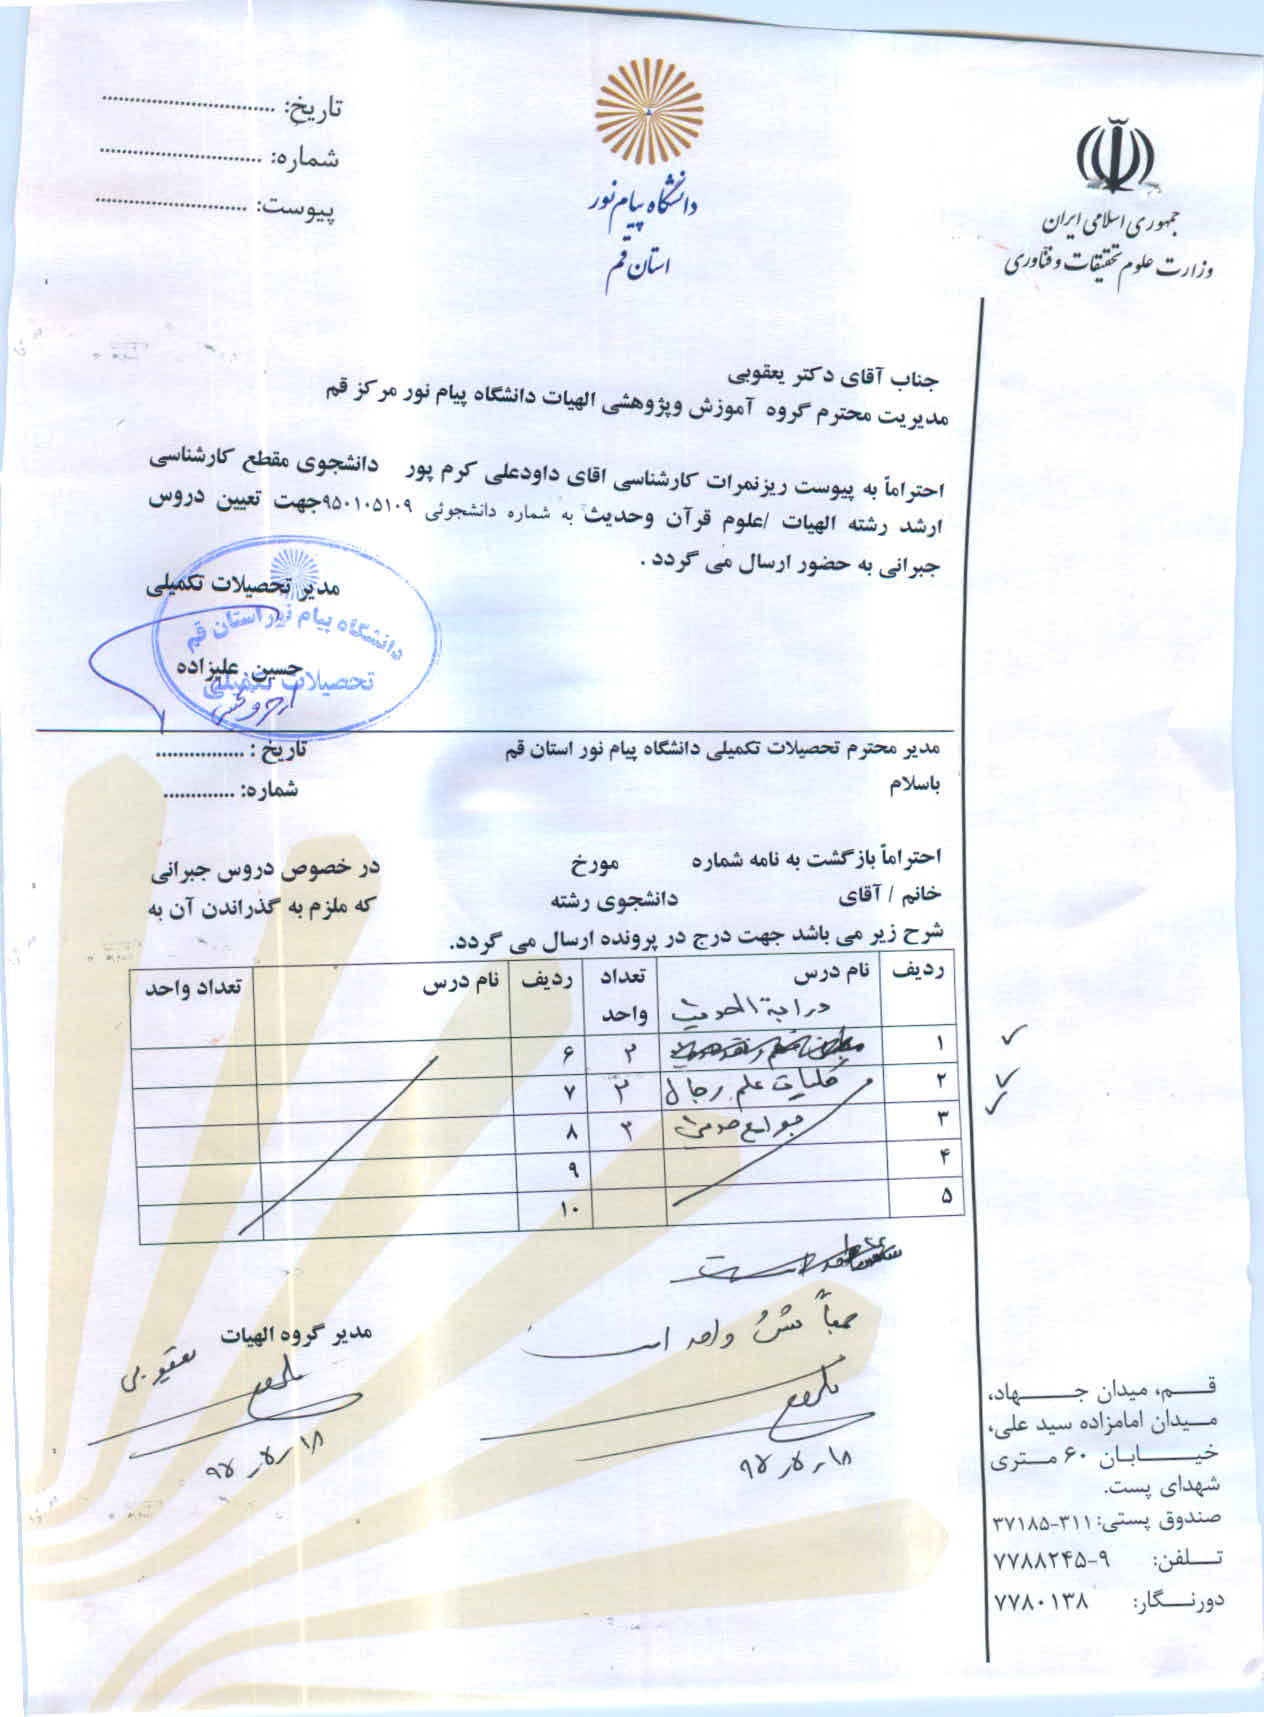 جمهوری اسلامی ایران
وزارت علوم تحقیقات و فناوری
دانشگاه پیام نور
استان قم
تاریخ: ..............................
شماره: ..............................
پیوست: ..............................
جناب آقای دکتر یعقوبی
مدیریت محترم گروه آموزش وپژوهشی الهیات دانشگاه پیام نور مرکز قم
احتراماً به پیوست ریزنمرات کارشناسی اقای داودعلی کرم پور دانشجوی مقطع کارشناسی
ارشد رشته الهیات /علوم قرآن وحدیث به شماره دانشجوئی ۹۵۰۱۰۵۱۰۹جهت تعیین دروس
جبرانی به حضور ارسال می گردد .
مدیر تحصیلات تکمیلی
دانشگاه پیام نور استان قم
حسین علیزاده
تحصیلات تکمیلی
مدیر محترم تحصیلات تکمیلی دانشگاه پیام نور استان قم
تاریخ : ................
باسلام
شماره: .............
احتراماً بازگشت به نامه شماره مورخ در خصوص دروس جبرانی
خانم / آقای دانشجوی رشته که ملزم به گذراندن آن به
شرح زیر می باشد جهت درج در پرونده ارسال می گردد.
ردیف نام درس تعداد واحد ردیف نام درس تعداد واحد
درایة الحدیث
۱ ۲ ۶
۲ کلیات علم رجال ۲ ۷
۳ جوامع حدیثی ۲ ۸
۴ ۹
۵ ۱۰
جمعاً شش واحد است
مدیر گروه الهیات
یعقوبی
قـــم، میدان جـــهاد،
میـدان امامزاده سید علی،
خیـــابـان ۶۰ متـری
شهدای پست.
صندوق پستی: ۳۱۱-۳۷۱۸۵
تـــلفن: ۹-۷۷۸۸۲۴۵
دورنـــگار: ۷۷۸۰۱۳۸